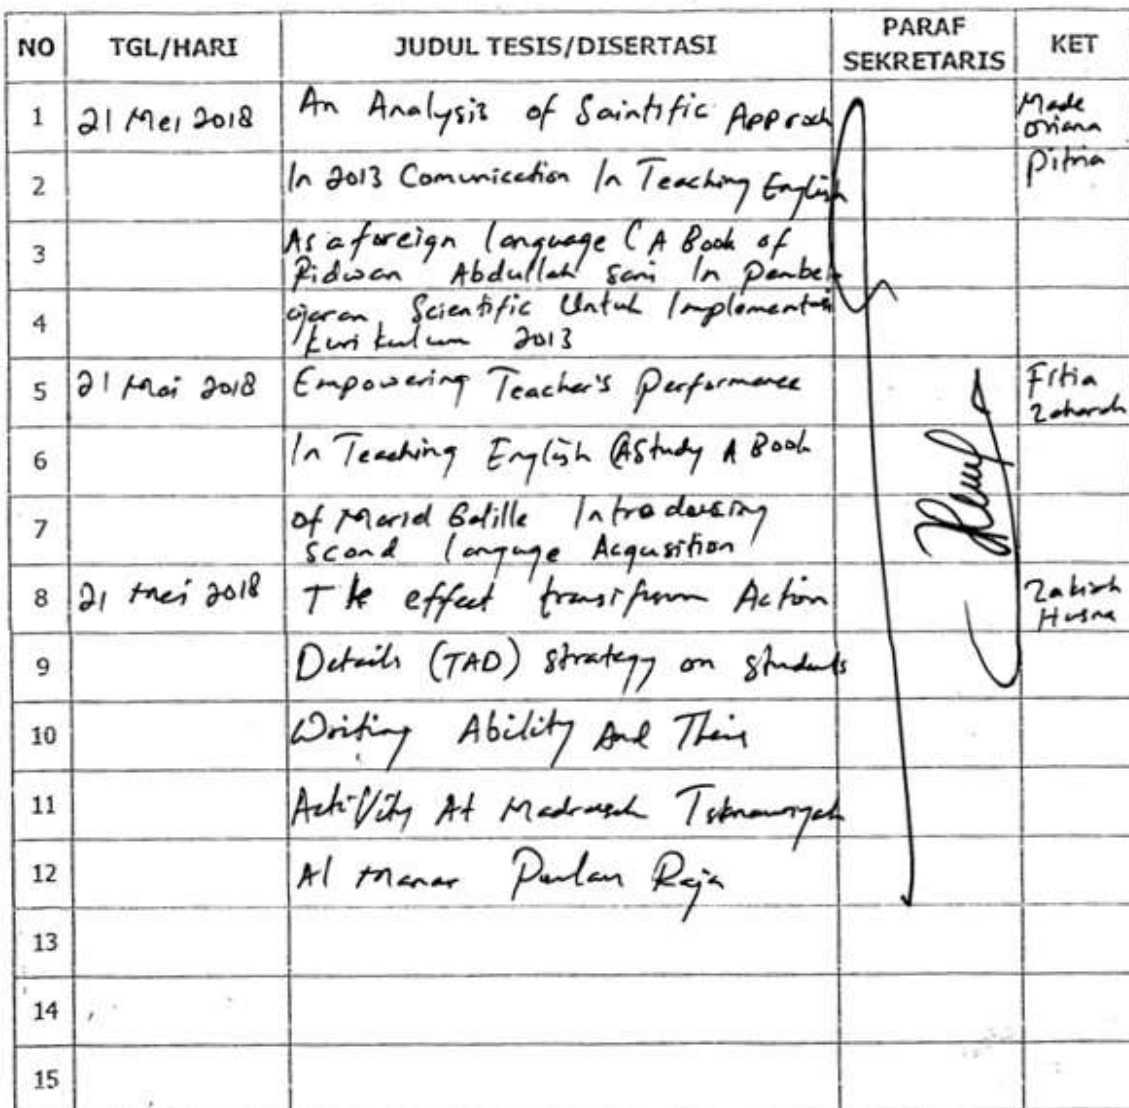 NO TGL/HARI JUDUL TESIS/DISERTASI PARAF SEKRETARIS KET
1 21 Mei 2018 An Analysis of Saintific Approch Made
oriana
2 In 2013 Comunication In Teaching English pitria
3 As a foreign language ( A Book of
Ridwan Abdullah Sani In Pembel
4 ajaran Scientific Untuk Implementasi
kurikulum 2013
5 21 Mei 2018 Empowering Teacher's Performance Fitia
Zaharah
6 In Teaching English (A Study A Book
7 of Introducing
scond language Acqusition
8 21 Mei 2018 The effect Action Zakiah
Husna
9 Details (TAD) strategy on students
10 Writing Ability And Their
11 Activity At Madrasah Tsanawiyah
12 Al Manar Pulau Raja
13
14
15